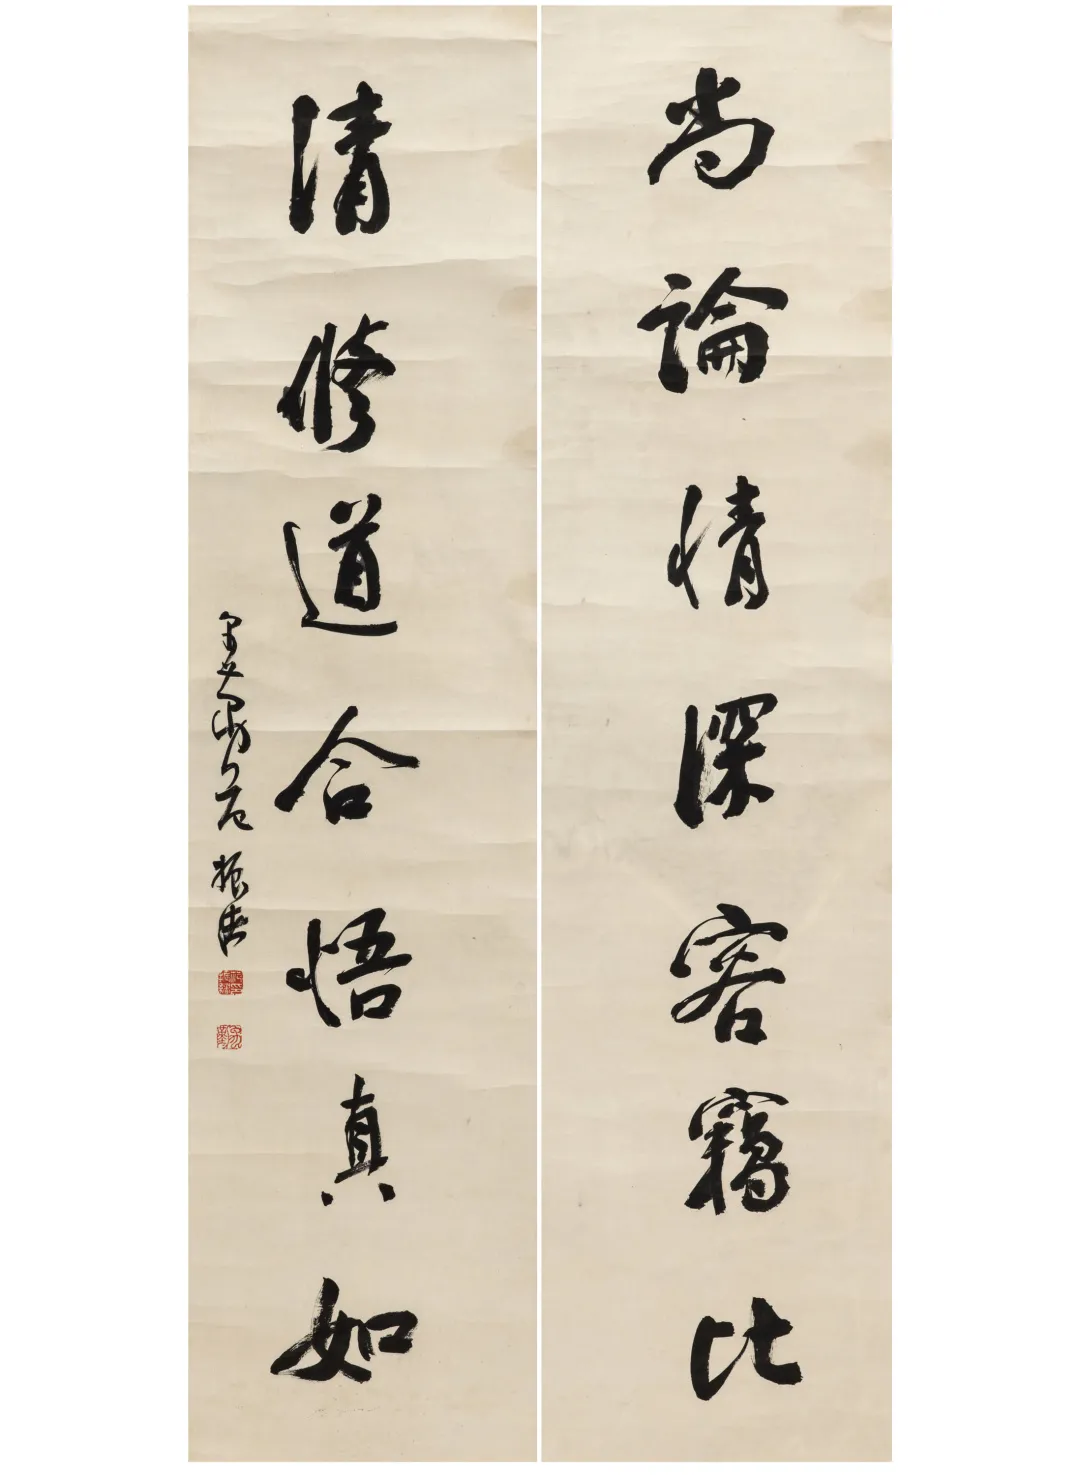 尚論情深容竊比
清修道合悟真如
振德